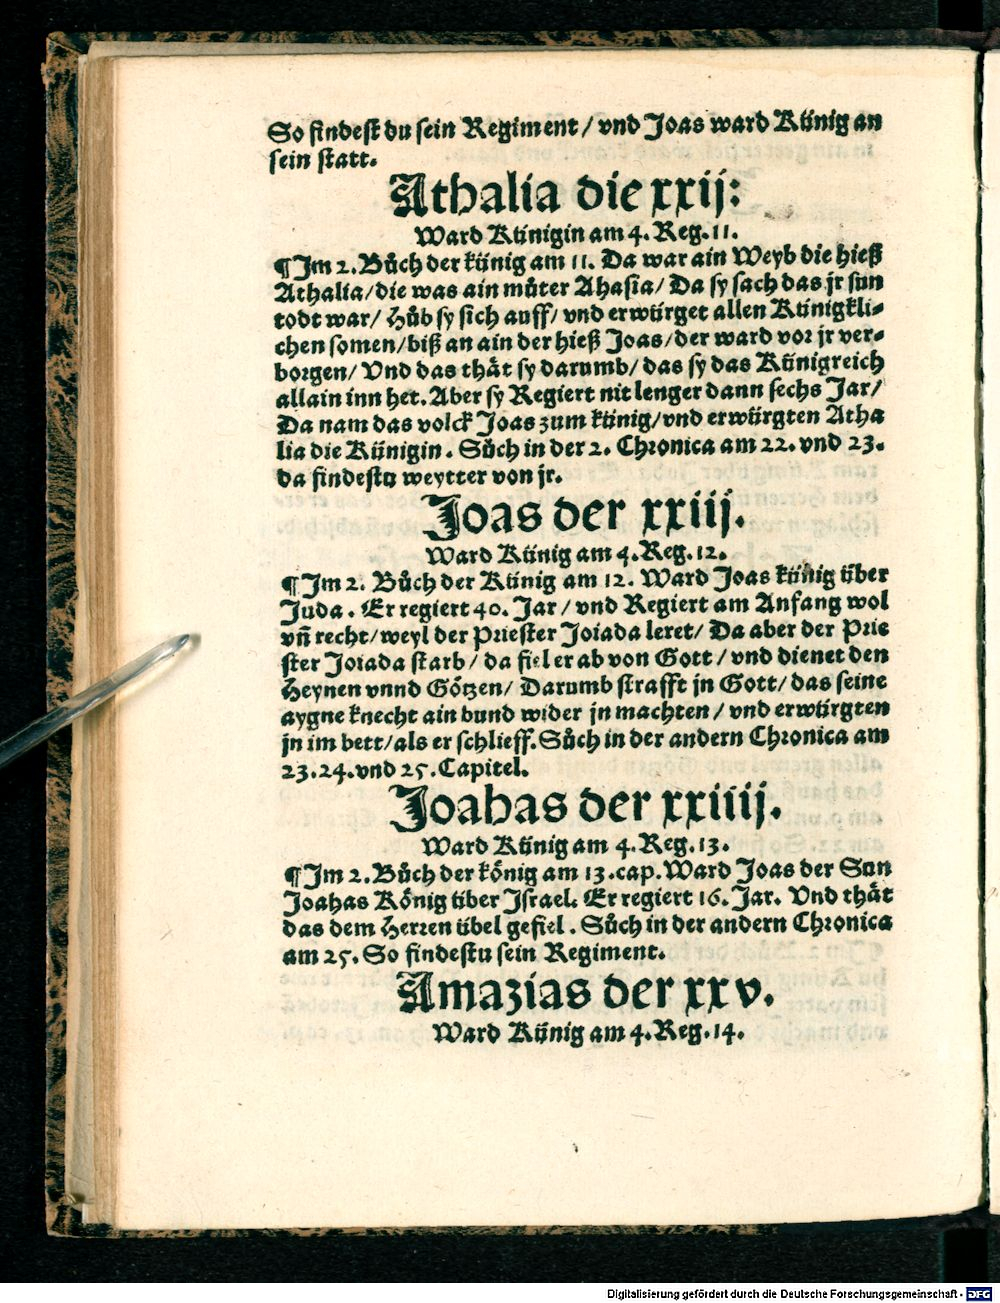 So findest du sein Regiment / vnd Joas ward Künig an
sein statt.
Athalia die xxij:
Ward Künigin am 4. Reg. 11.
¶ Jm 2. Bůch der künig am 11. Da war ain Weyb die hieß
Athalia / die was ain můter Ahasia / Da sy sach das jr sun
todt war / Hůb sy sich auff / vnd erwürget allen Künigkli-
chen somen / biß an ain der hieß Joas / der ward vor jr ver-
borgen / Vnd das thät sy darumb / das sy das Künigreich
allain inn het. Aber sy Regiert nit lenger dann sechs Jar /
Da nam das volck Joas zum künig / vnd erwürgten Atha
lia die Künigin. Sůch in der 2. Chronica am 22. vnd 23.
da findestu weytter von jr.
Joas der xxiij.
Ward Künig am 4. Reg. 12.
¶ Jm 2. Bůch der Künig am 12. Ward Joas künig über
Juda. Er regiert 40. Jar / vnd Regiert am Anfang wol
vñ recht / weyl der Priester Joiada leret / Da aber der Prie
ster Joiada starb / da fiel er ab von Gott / vnd dienet den
Heynen vnnd Götzen / Darumb strafft jn Gott / das seine
aygne knecht ain bund wider jn machten / vnd erwürgten
jn im bett / als er schlieff. Sůch in der andern Chronica am
23. 24. vnd 25. Capitel.
Joahas der xxiiij.
Ward Künig am 4. Reg. 13.
¶ Jm 2. Bůch der könig am 13. cap. Ward Joas der Sun
Joahas König über Jsrael. Er regiert 16. Jar. Vnd thät
das dem Herren übel gefiel. Sůch in der andern Chronica
am 25. So findestu sein Regiment.
Amazias der xxv.
Ward Künig am 4. Reg. 14.
Digitalisierung gefördert durch die Deutsche Forschungsgemeinschaft - DFG